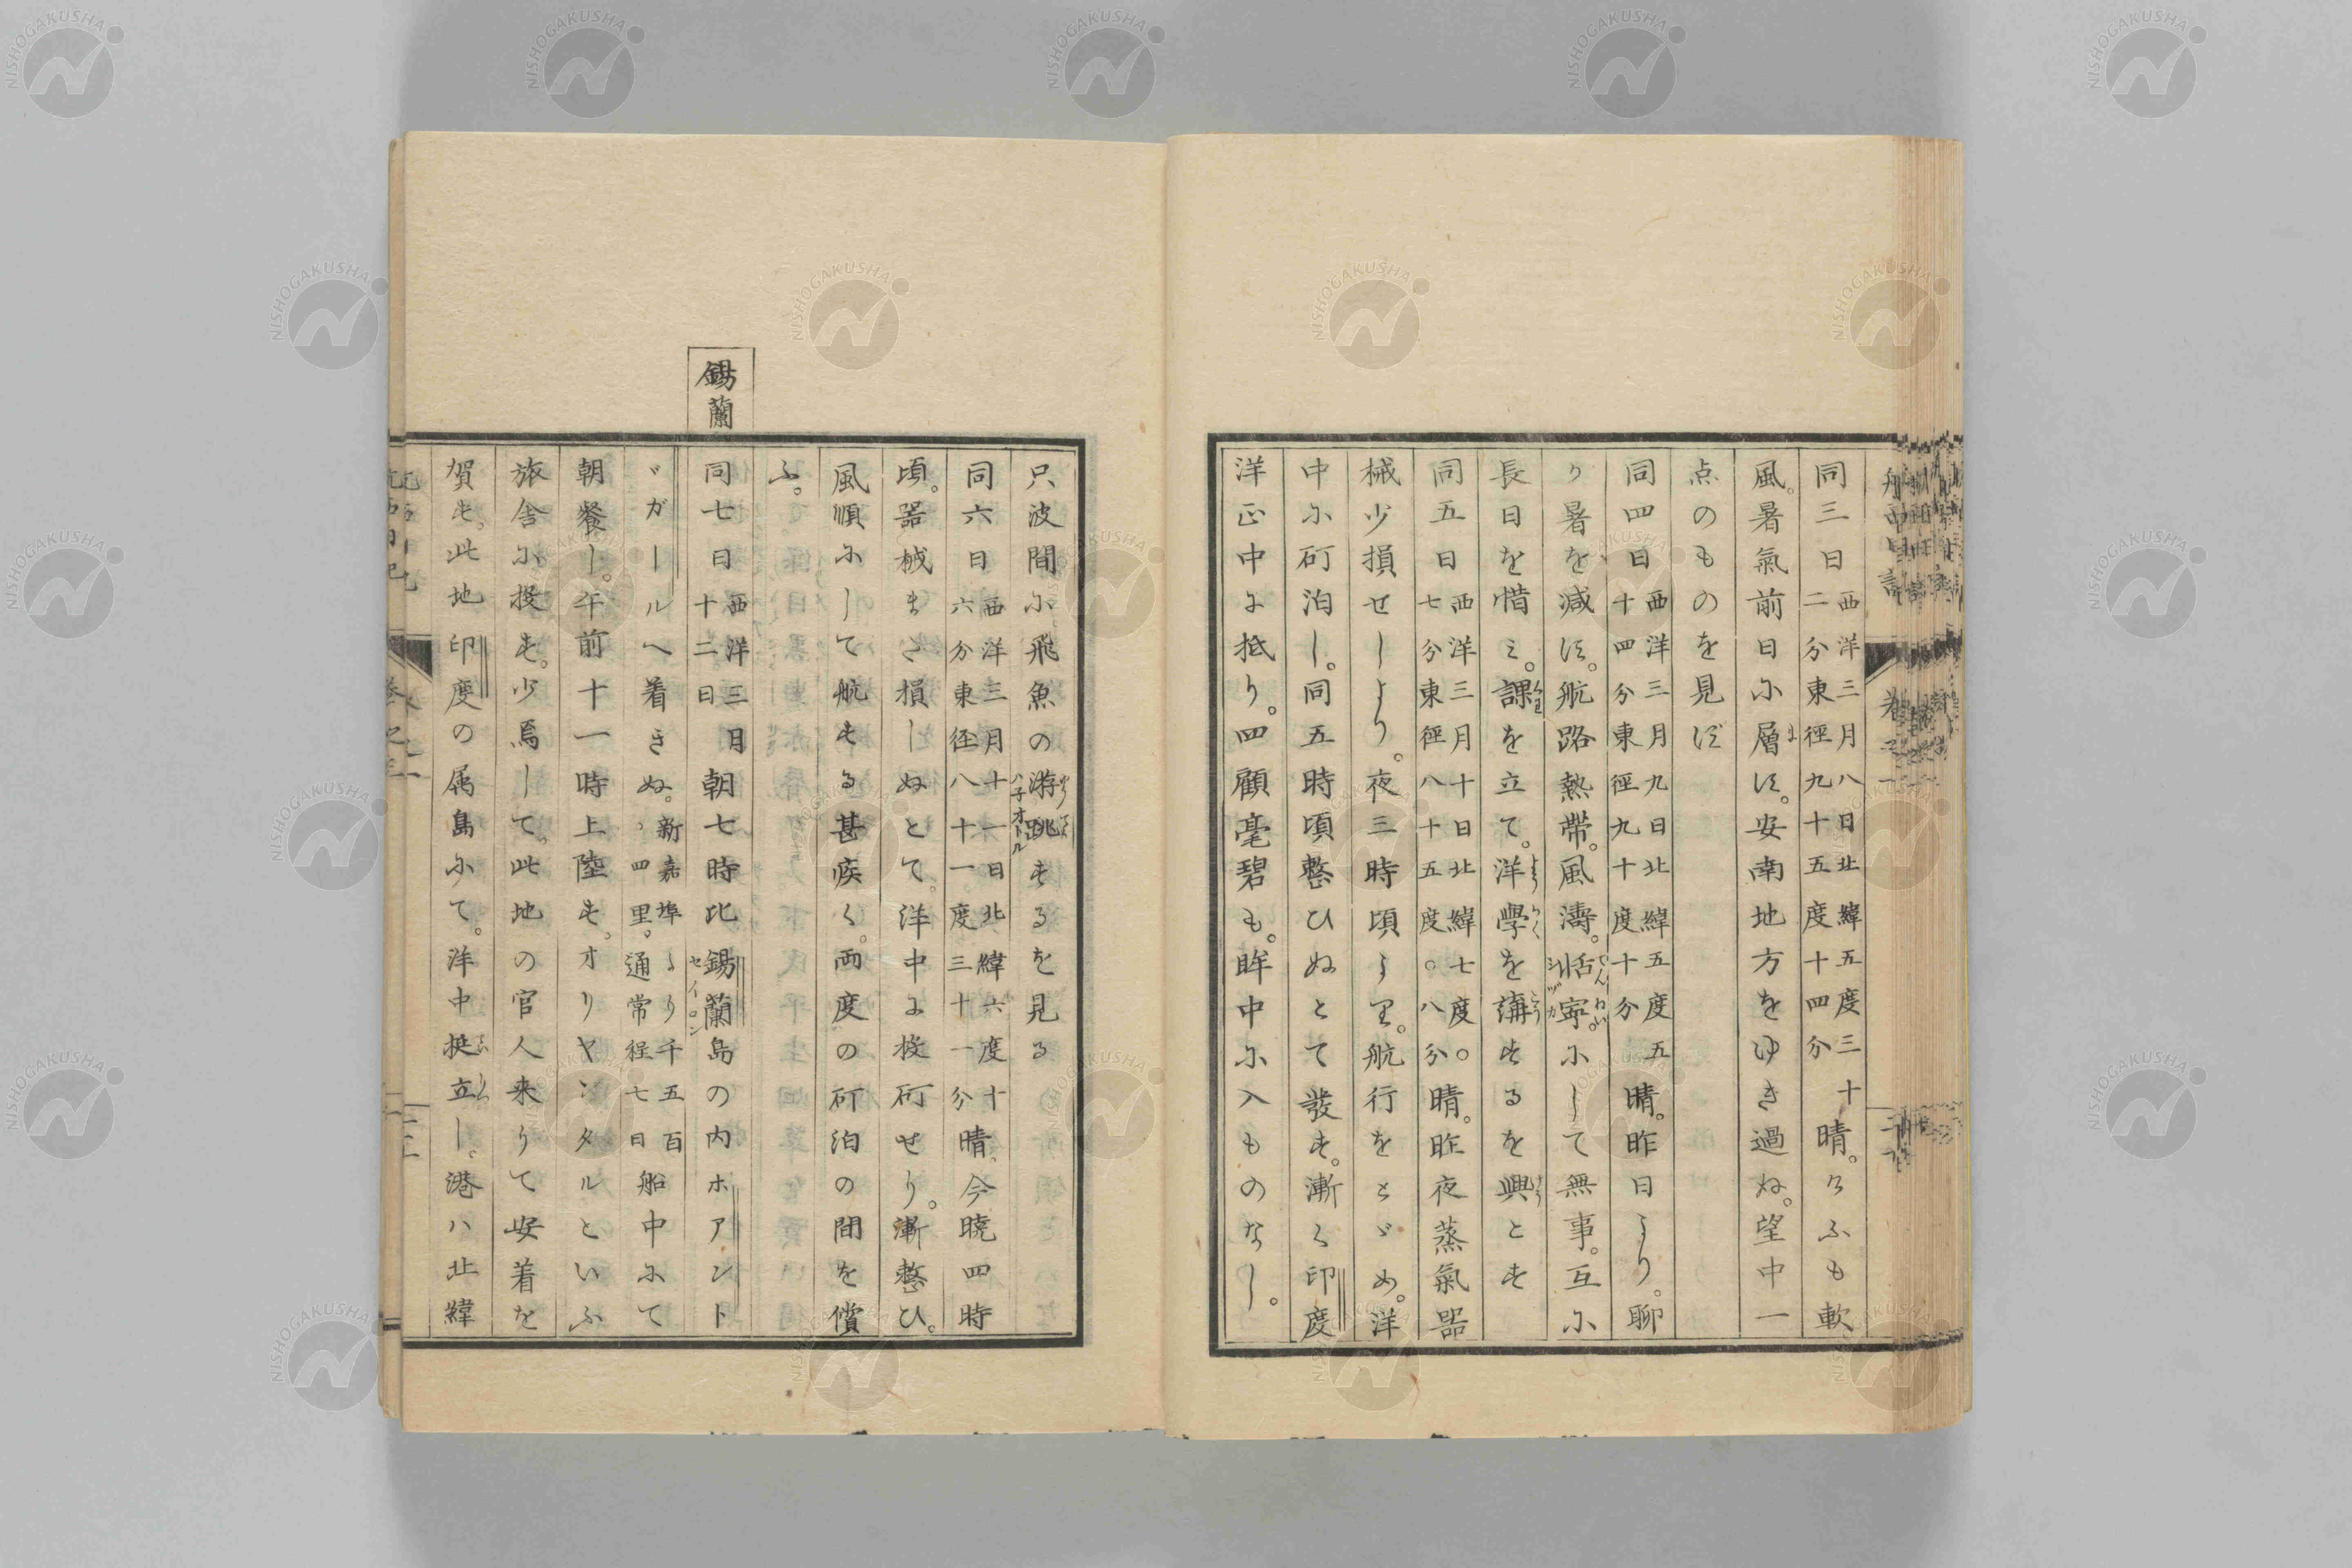 同三日西洋三月八日北緯五度三十二分東徑九十五度十四分晴。けふも軟
風。暑氣前日に層す。安南地方をゆき過ぬ。望中一
点のものを見ず
同四日西洋三月九日北緯五度五十四分東徑九十度十分晴。昨日より。聊
か暑を減ず。航路熱帯。風濤。恬寧。にして無事。互に
長日を惜み。課を立て。洋學を講するを興とす
同五日西洋三月十日北緯七度〇七分東徑八十五度〇八分晴。昨夜蒸氣器
械少損せしより。夜三時頃より。航行をとゞめ。洋
中に矴泊し。同五時頃整ひぬとて發す。漸く印度
洋正中に抵り。四顧毫碧も。眸中に入ものなし。
錫蘭
只波間に飛魚の游跳するを見る
ハ子オドル
同六日西洋三月十一日北緯六度十六分東徑八十一度三十一分晴。今曉四時
頃。器械まさ損しぬとて。洋中に投矴せり。漸整ひ。
風順にして航する甚疾く。両度の矴泊の間を償
ふ。
同七日西洋三月十二日朝七時比錫蘭島の内ホアント
セイロン
ヾガールへ着きぬ。新嘉埠より千五百、四里。通常程七日船中にて
朝餐し。午前十一時上陸す。オリヤンタルといふ
旅舎に投す。少焉して。此地の官人来りて安着を
賀す。此地印度の属島にて。洋中挺立し。港ハ北緯